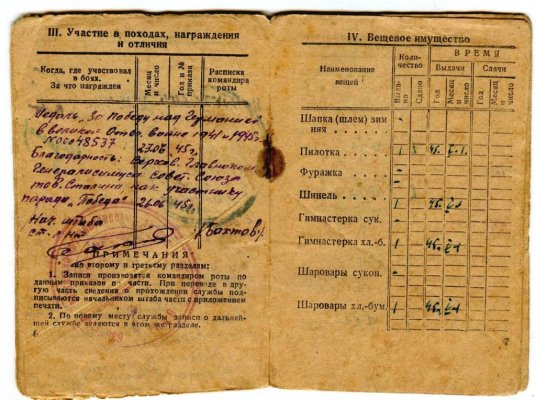 III. Участие в походах, награждения
и отличия
Когда, где участвовал
в боях.
За что награжден
Месяц
и число
Год и №
приказа
Расписка
командира
роты
Медаль „За Победу над Германией
в великой Отеч. войне 1941-1945г.
23.06 45г.
Благодарность: Верхов. Главноком.
Генералиссимуса Совет. Союза
тов. Сталина, как участнику
парада „Победы" 26.06 45г.
Нач. штаба
ст. л-нт
ПРИМЕЧАНИЯ
ко второму и третьему разделам:
1. Записи производятся командиром роты по
данным приказов и части. При переводе в дру-
гую часть сведения о прохождении службы под-
писываются начальником штаба части с приложением
печати.
2. По новому месту службы записи о дальней-
шей службе ведяются в этом же разделе.
6
IV. Вещевое имущество
Наименование
вещей
Коли-
чество
ВРЕМЯ
Выдачи
Сдачи
Выда-
но
Сдано
Год
Месяц
и
число
Год
Месяц
и
число
Шапка (шлем) зим
няя
Пилотка 1 45
Фуражка -
Шинель 1 45
Гимнастерка сук. -
Гимнастерка хл.-б. 1 45
Шаровары сукон. -
Шаровары хл.-бум. 1 45
7